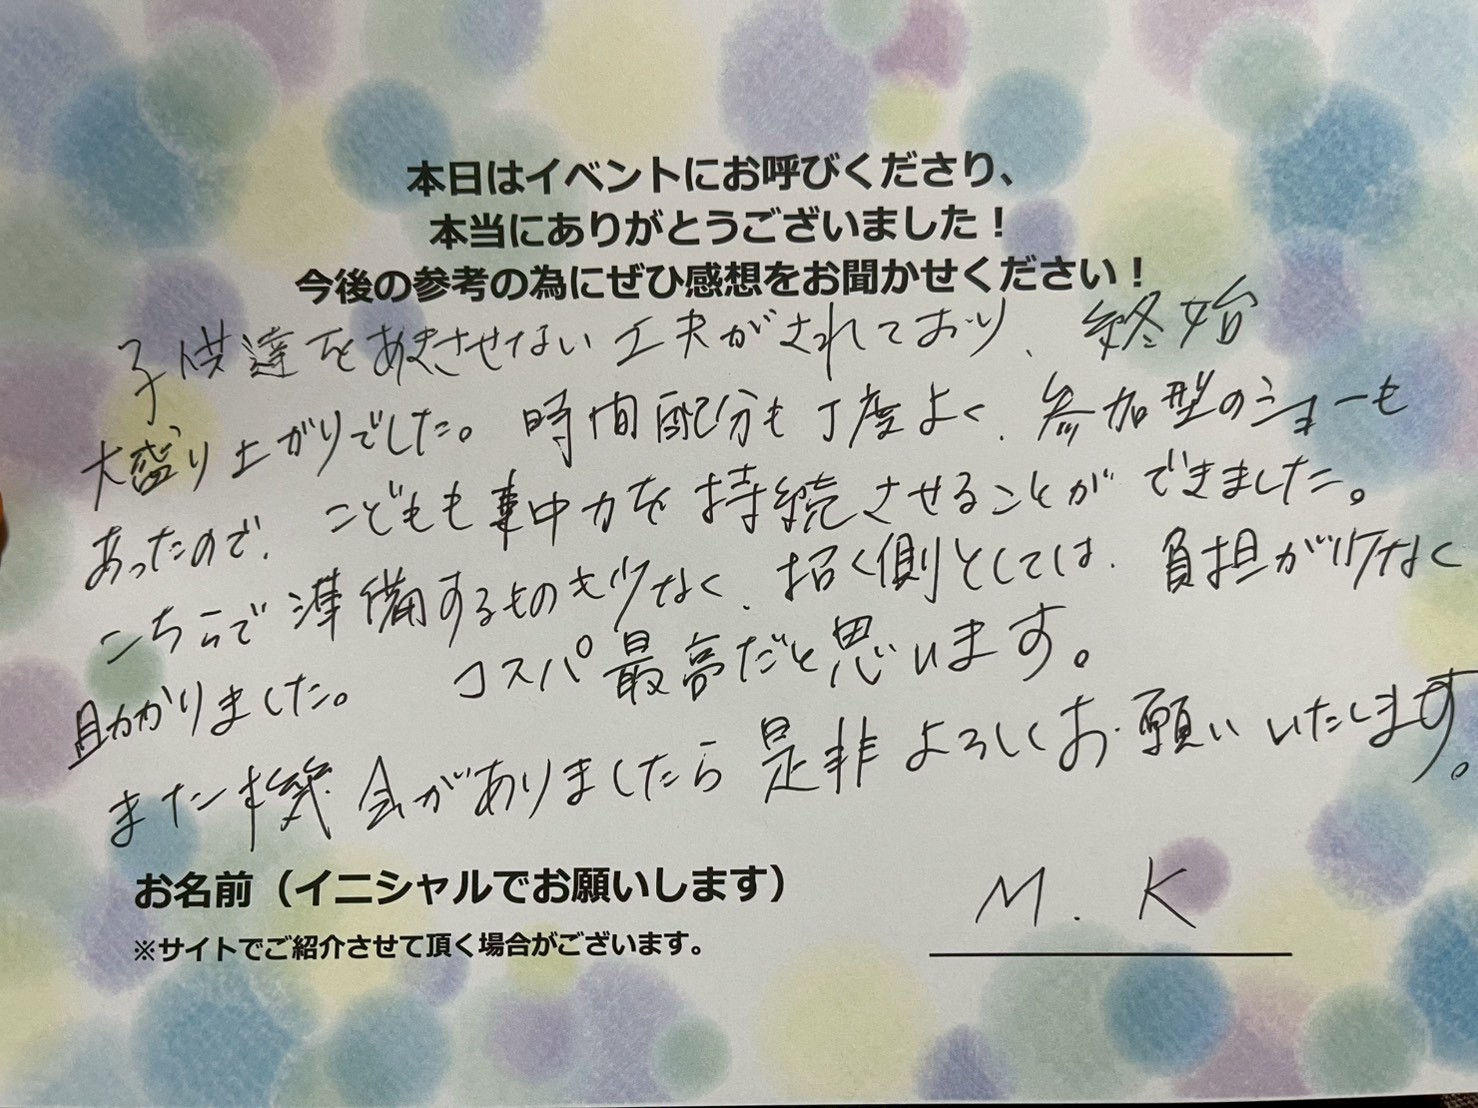 本日はイベントにお呼びくださり、
本当にありがとうございました！
今後の参考の為にぜひ感想をお聞かせください！
子供達をあきさせない工夫がされており、終始
大盛り上がりでした。時間配分も丁度よく、参加型のショーも
あったので、こどもも集中力を持続させることができました。
こちらで準備するものも少なく、招く側としては、負担が少なく
助かりました。 コスパ最高だと思います。
また機会がありましたら是非よろしくお願いいたします。
お名前（イニシャルでお願いします）
M. K
※サイトでご紹介させて頂く場合がございます。